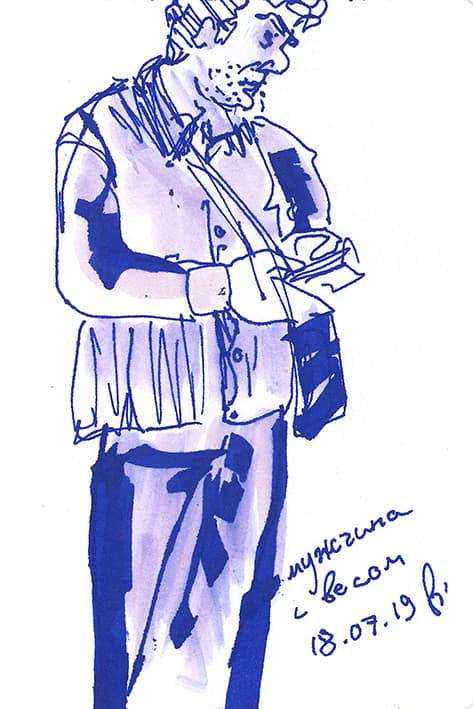 мужчина
с весом
18.07.19 В.